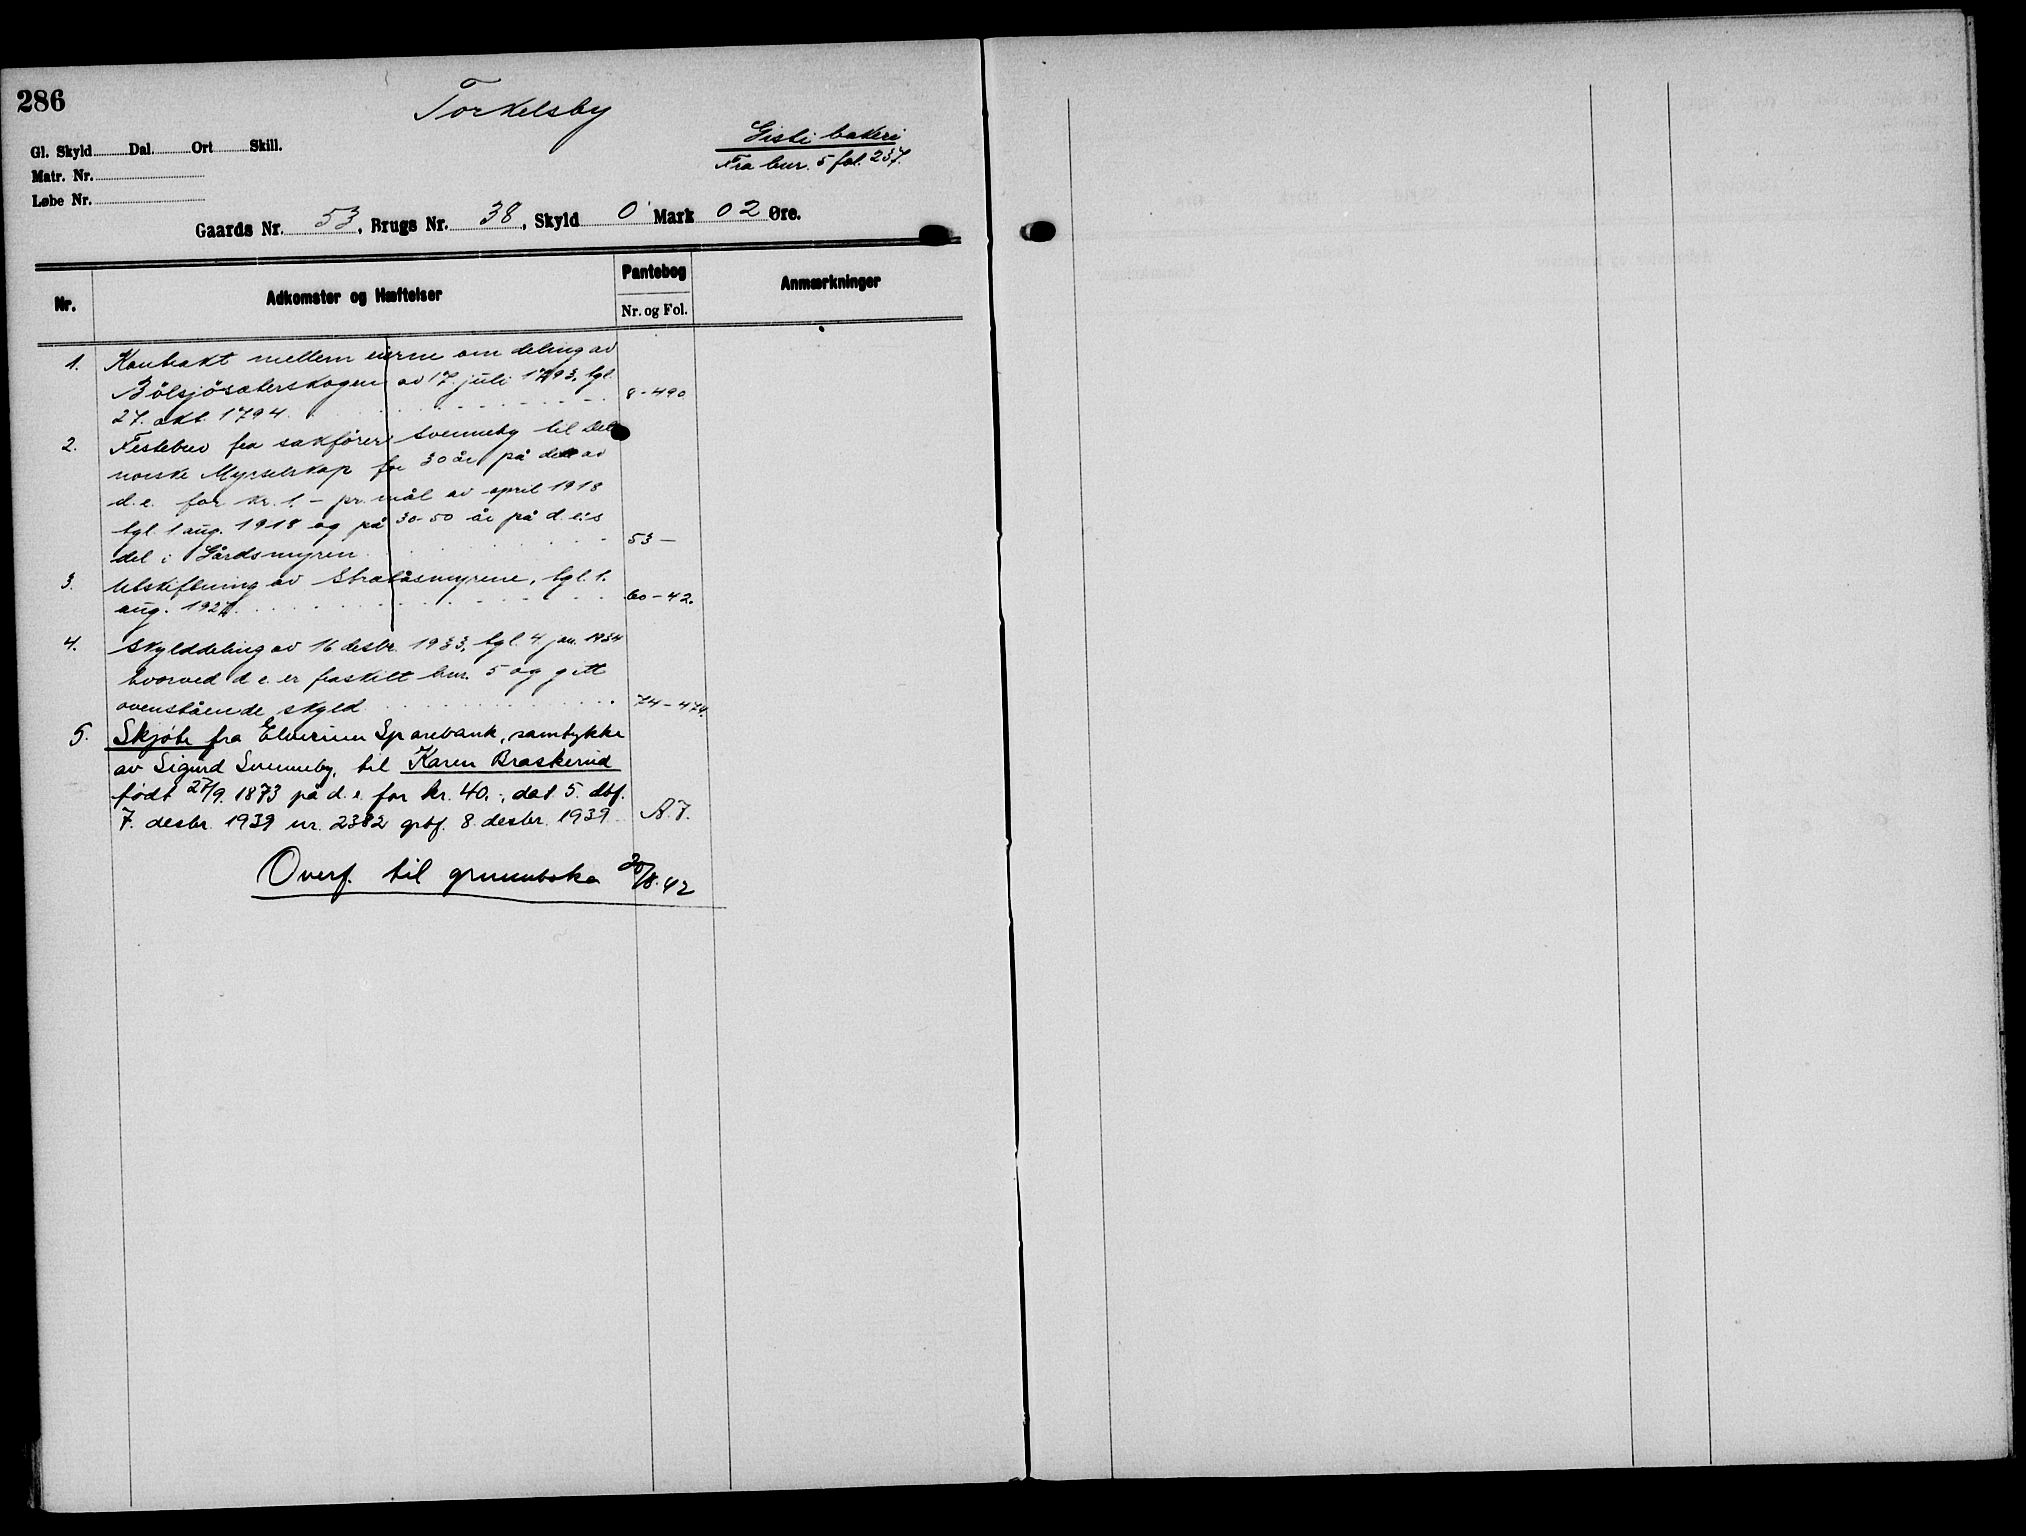 286
Torkelsby
Gisti bakeri
Fra bnr. 5 fol. 237.
Gl. Skyld Dal. Ort Skill.
Matr. Nr.
Løbe Nr.
Gaards Nr. 53, Brugs Nr. 38, Skyld 0 Mark 02 Øre.
Nr. Adkomster og Hæftelser Pantebog Anmærkninger
Nr. og Fol.
1. Kontrakt mellem eierne om deling av
Bölsjösæterskogen av 17. juli 1793, tgl.
27. okt. 1794. 8-490
2. Festebrev fra sakförer Svenneby til Det
norske Myrselskap for 30 år på del av
d.e. for kr. 1.- pr. mål av april 1918
tgl. 1 aug. 1918 og på 30-50 år på d.e:s
del i Gårdsmyren. 53-
3. Utskiftning av Stratåsmyrene, tgl. 1.
aug. 1927. 60-42.
4. Skylddeling av 16 desbr. 1933, tgl. 4 jan. 1934
hvorved d.e. er fraskilt bnr. 5 og gitt
ovenstående skyld 74-474.
5. Skjøte fra Elverum Sparebank, samtykke
av Sigurd Svenneby, til Karen Braskerud
født 27/9. 1873 på d.e. for kr. 40.-, dat. 5. dbf.
7. desbr. 1939 nr. 2382 grbf. 8. desbr. 1939. A.7.
Overf. til grunnboka 20/8.42